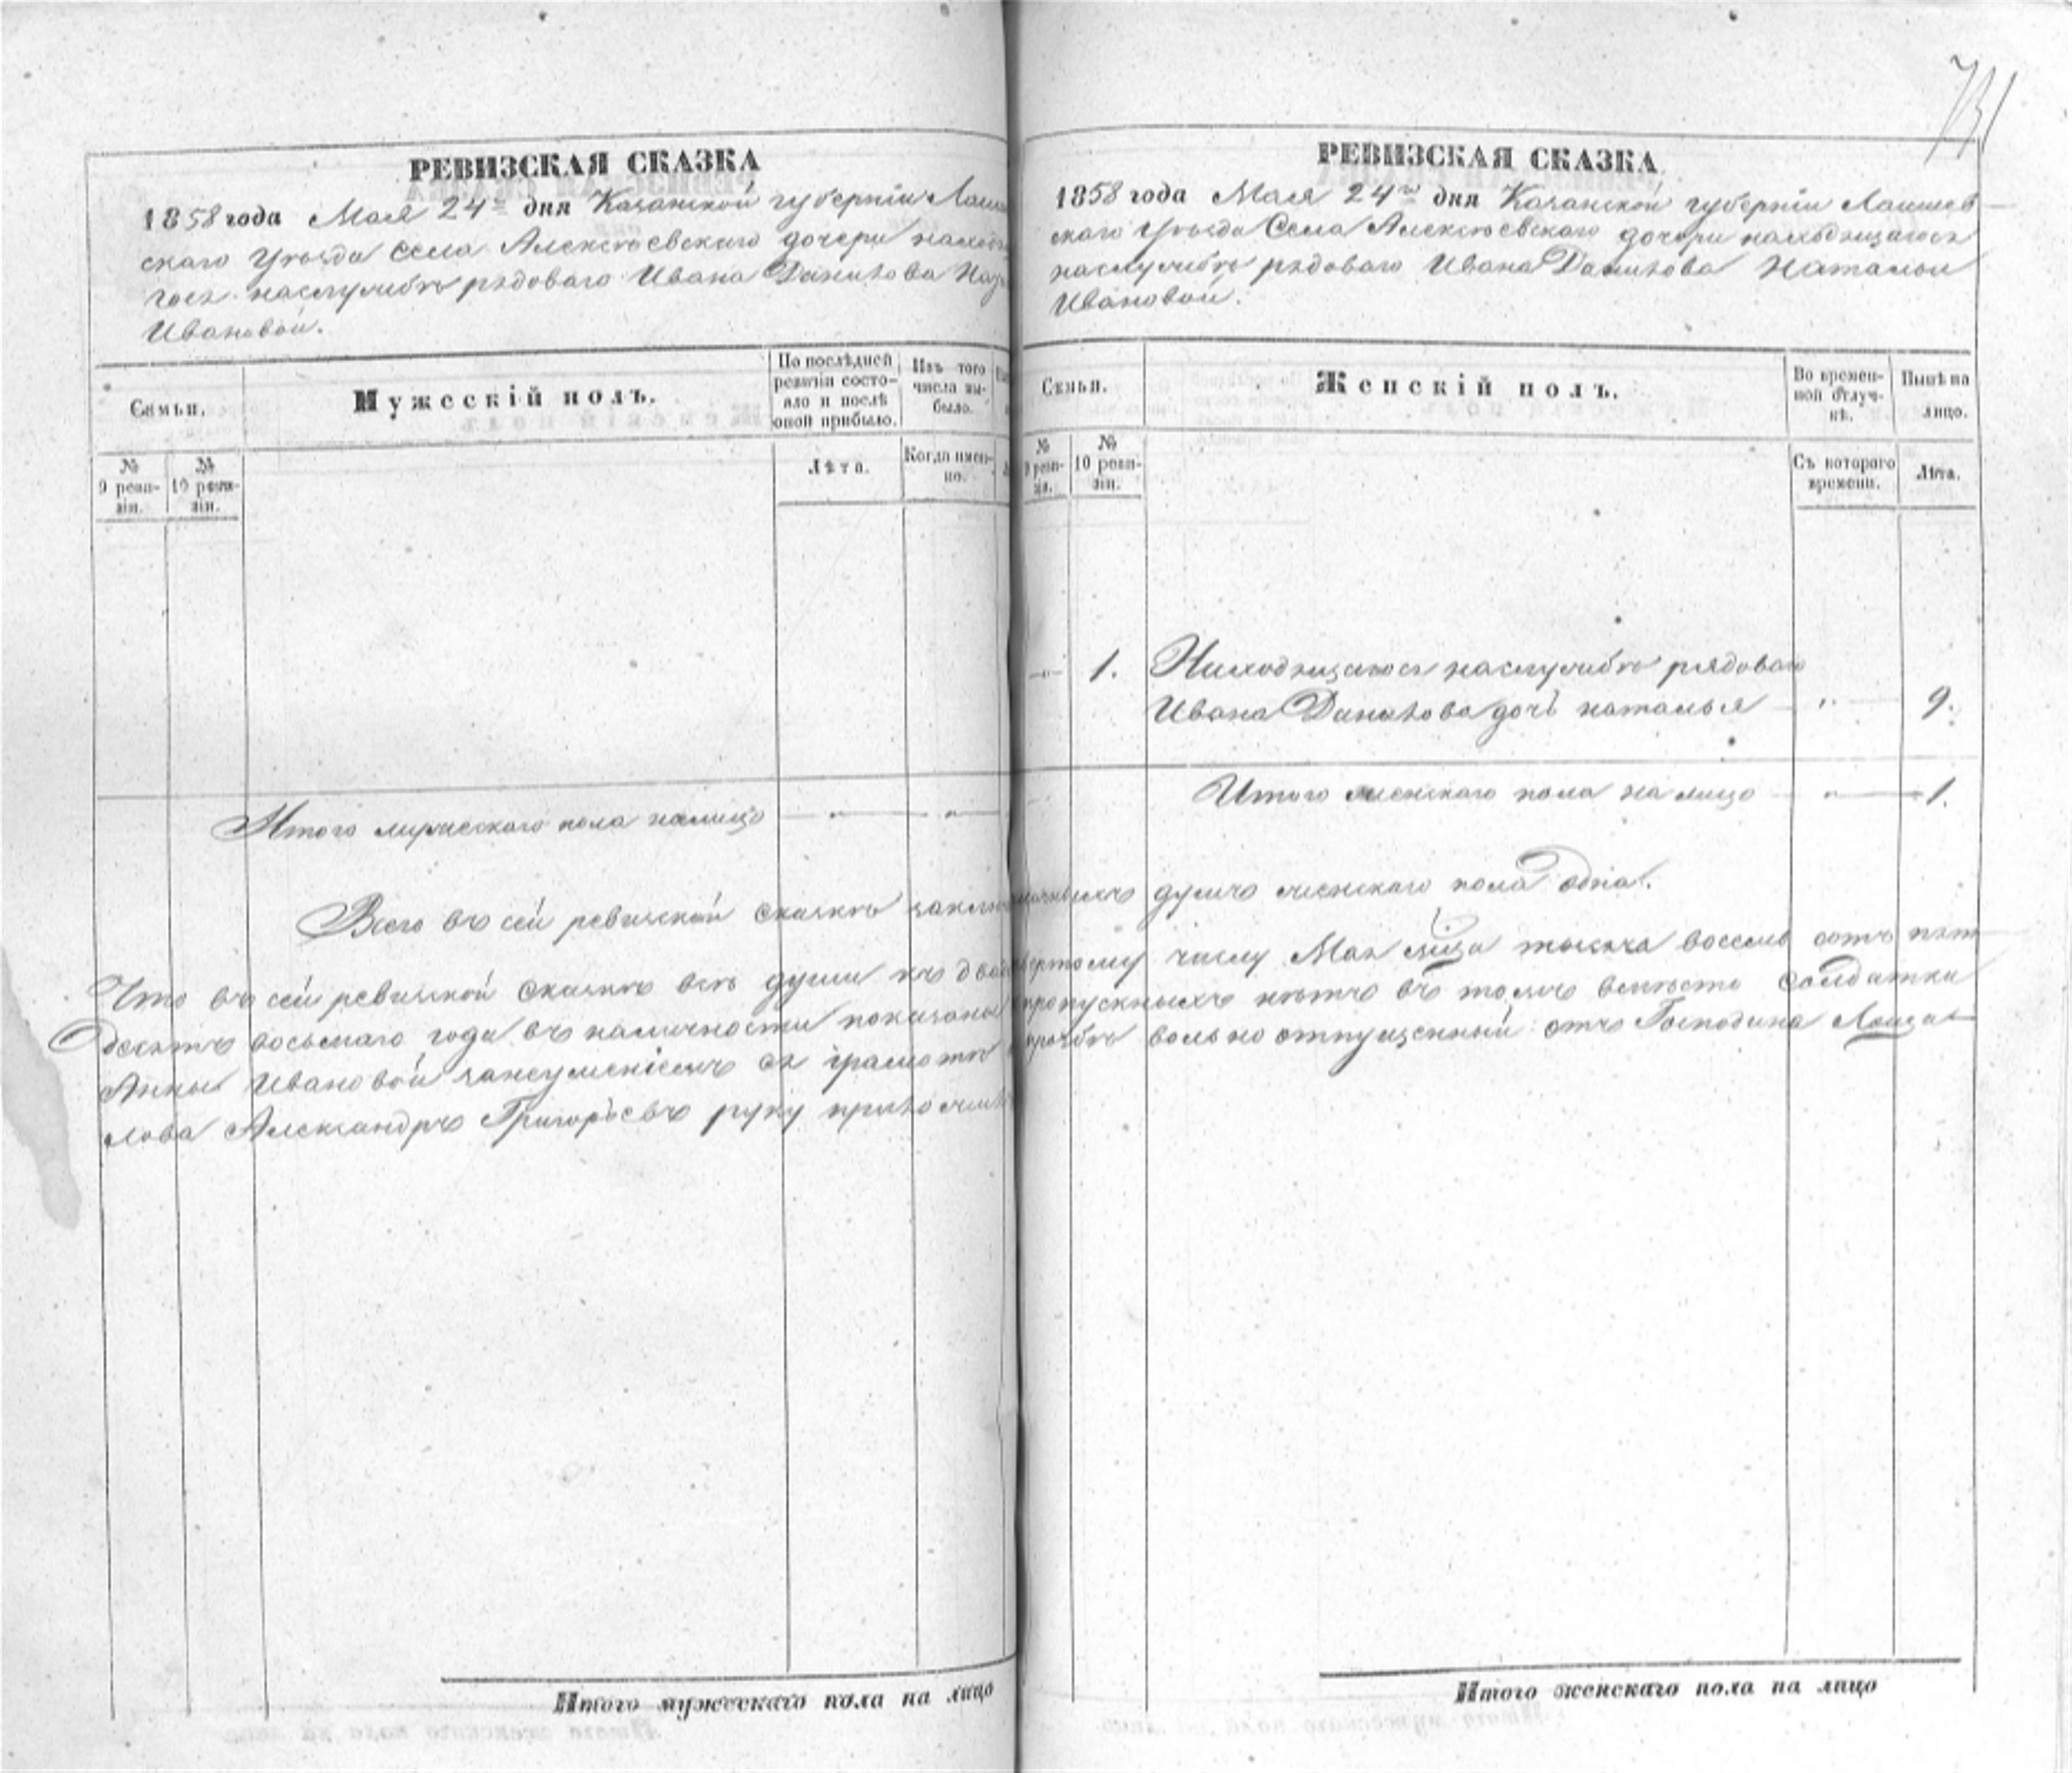 731
РЕВИЗСКАЯ СКАЗКА
1858 года Мая 24го дня Казанской губерніи Лаишев
скаго Уѣзда села Алексѣевскаго дочери находя
гося на службѣ рядоваго Ивана Данилова
Ивановой.
Семьи.
Мужескій полъ.
По послѣдней ревизіи состояло и послѣ оной прибыло.
Изъ того числа выбыло.
№ 9 ревизіи.
№ 10 ревизіи.
Лѣта.
Когда именно.
Итого мужескаго пола налицо — „ — „ —
РЕВИЗСКАЯ СКАЗКА
1858 года Мая 24го дня Казанской губерніи Лаишев
скаго Уѣзда Села Алексѣевскаго дочери находящагося
на службѣ рядоваго Ивана Данилова Натальи
Ивановой.
Семьи.
Женскій полъ.
Во временной отлучкѣ.
Нынѣ на лицо.
№ 9 ревизіи.
№ 10 ревизіи.
Съ котораго времени.
Лѣта.
—„— 1. Находящагося на службѣ рядоваго
Ивана Данилова дочь наталья — „ — 9.
Итого женскаго пола на лицо — „ — 1.
Всего въ сей ревизской сказкѣ заключающихъ душъ женскаго пола одна.
Что въ сей ревизской сказкѣ всѣ души къ двадцать четвертому числу Мая мца тысяча восемь сотъ пят
десятъ восьмаго года въ наличности показаны и пропускныхъ нѣтъ въ томъ вмѣсто солдатки
Анны Ивановой занеумѣніемъ ея грамотѣ по прозбѣ вольно отпущенный отъ Господина
лова Александръ Григорьевъ руку приложилъ
Итого мужескаго пола на лицо
Итого женскаго пола на лицо